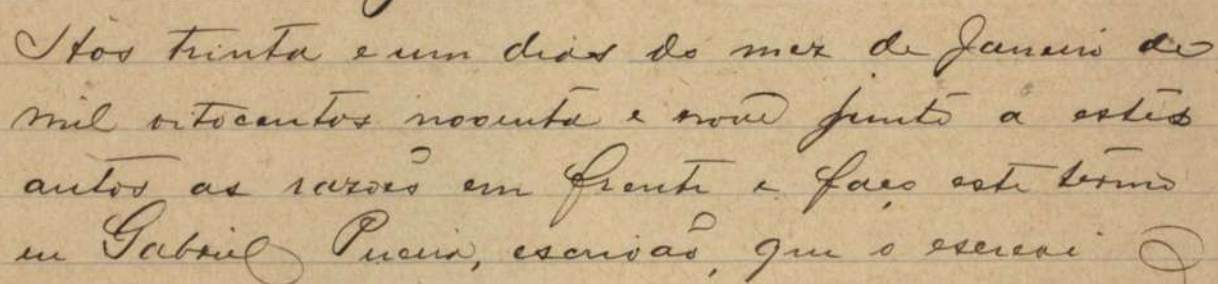 Aos trinta e um dias do mez de Janeiro de
mil oitocentos noventa e nove junto a estes
autos as razões em frente e faço este termo
eu Gabriel Pereira, escrivão, que o escrevi